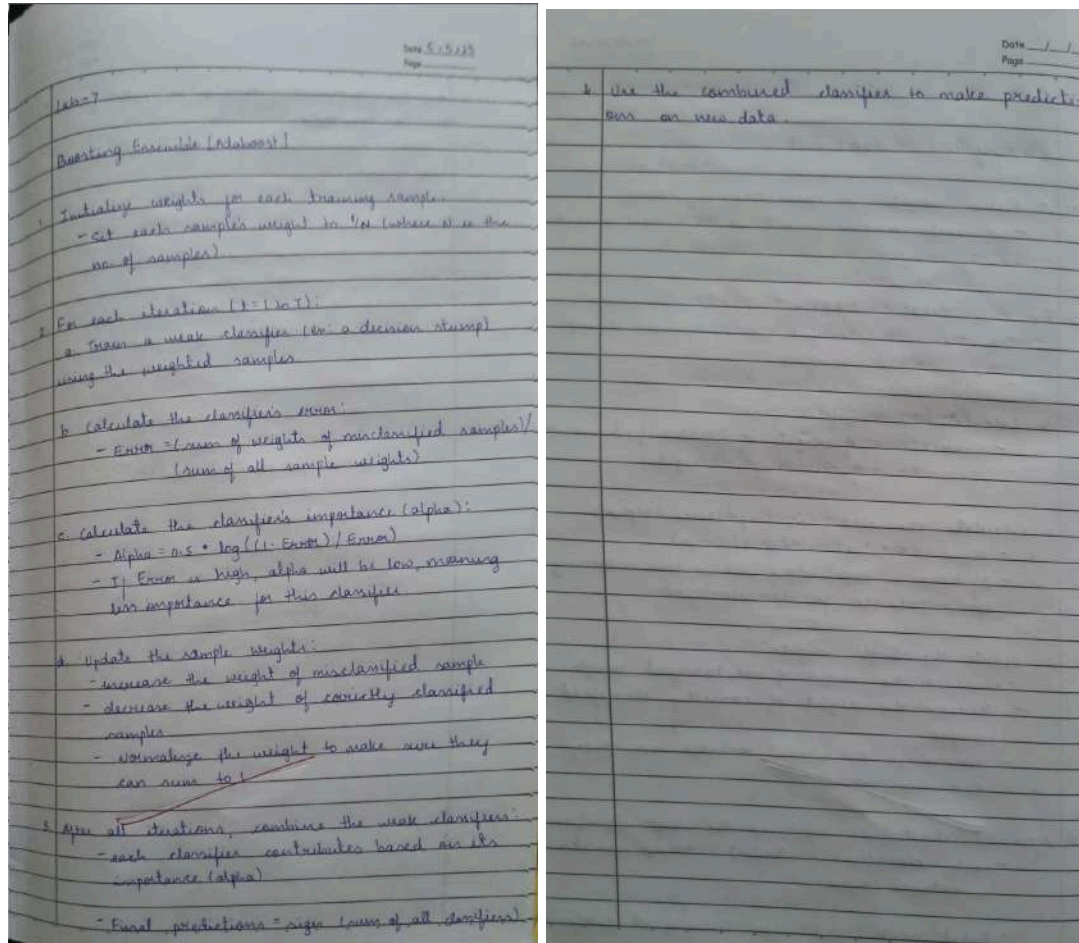 Date 5/5/25
Page
Lab-7
Boosting Ensemble [Adaboost]
1. Initialize weights for each training sample.
- Set each sample's weight to 1/N (where N is the
no. of samples)
2. For each iteration (t=1 to T):
a. Train a weak classifier (ex: a decision stump)
using the weighted samples.
b. Calculate the classifier's error:
- Error = (sum of weights of misclassified samples)/
(sum of all sample weights)
c. Calculate the classifier's importance (alpha):
- Alpha = 0.5 * log((1 - Error) / Error)
- If Error is high, alpha will be low, meaning
less importance for this classifier.
d. Update the sample weights:
- increase the weight of misclassified sample
- decrease the weight of correctly classified
samples
- Normalize the weight to make sure they
can sum to 1
3. After all iterations, combine the weak classifiers:
- each classifier contributes based on its
importance (alpha)
- Final predictions = sign (sum of all classifiers)
Date / /
Page
Use the combined classifier to make predicti-
ons on new data.